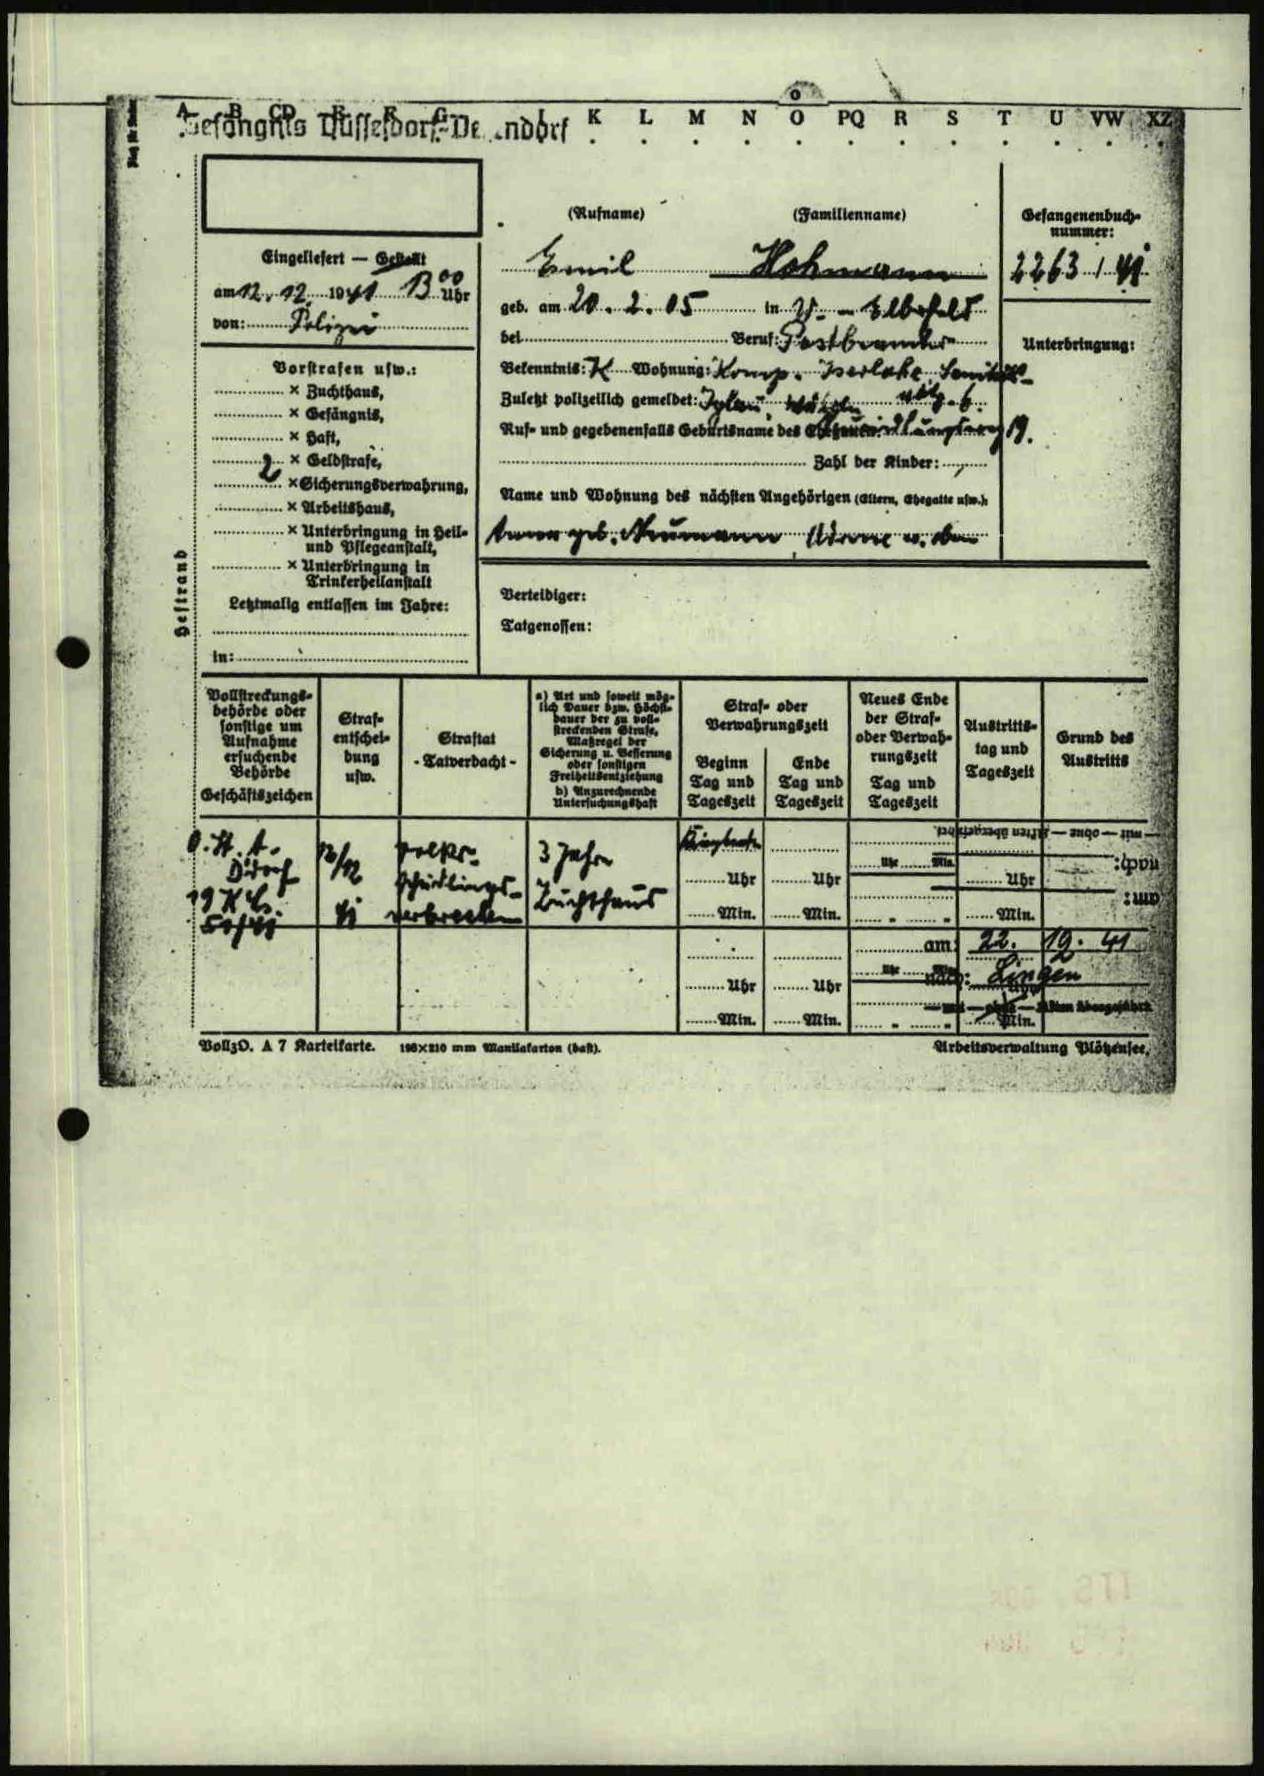 A B CD E F G K L M N O PQ R S T U VW XZ
Gefängnis Düsseldorf-De ndorf
(Rufname) (Familienname) Gefangenenbuch-
nummer:
Eingeliefert — Gestellt
Emil Hohmann 2263 / 41
am 12. 12. 1941 13 00 Uhr
geb. am 20. 2. 05 in W. - Elberfeld
von: Polizei
bei Beruf: Postbeamter
Unterbringung:
Vorstrafen usw.:
Bekenntnis: K Wohnung: Komp.
× Zuchthaus,
Zuletzt polizeilich gemeldet:
× Gefängnis,
Ruf- und gegebenenfalls Geburtsname des 19.
× Haft,
× Geldstrafe,
Zahl der Kinder:
2 × Sicherungsverwahrung,
Name und Wohnung des nächsten Angehörigen (Eltern, Ehegatte usw.):
× Arbeitshaus,
× Unterbringung in Heil-
und Pflegeanstalt,
geb. Neumann w. oben
× Unterbringung in
Trinkerheilanstalt
Heftrand
Letztmalig entlassen im Jahre:
in:
Verteidiger:
Tatgenossen:
Vollstreckungs-
behörde oder
sonstige um
Aufnahme
ersuchende
Behörde
Geschäftszeichen
Straf-
entschei-
dung
usw.
Straftat
- Tatverdacht -
a) Art und soweit mög-
lich Dauer bzw. Höchst-
dauer der zu voll-
streckenden Strafe,
Maßregel der
Sicherung u. Besserung
oder sonstigen
Freiheitsentziehung
b) Anzurechnende
Untersuchungshaft
Straf- oder
Verwahrungszeit
Beginn
Tag und
Tageszeit
Ende
Tag und
Tageszeit
Neues Ende
der Straf-
oder Verwah-
rungszeit
Tag und
Tageszeit
Austritts-
tag und
Tageszeit
Grund des
Austritts
O. St. A.
D'dorf
12/12
41
Volks-
schädlings-
verbrechen
3 Jahre
Zuchthaus
Uhr Uhr Uhr Min. Uhr
Min. Min. Min.
— mit — ohne — Akten übergeführt.
nach:
am:
am: 22. 12. 41
nach: Lingen
Uhr Uhr
— mit — ohne — Akten übergeführt.
Min. Min. Min.
VollzO. A 7 Karteikarte. 198×210 mm Manilakarton (haft). Arbeitsverwaltung Plötzensee.
ITS